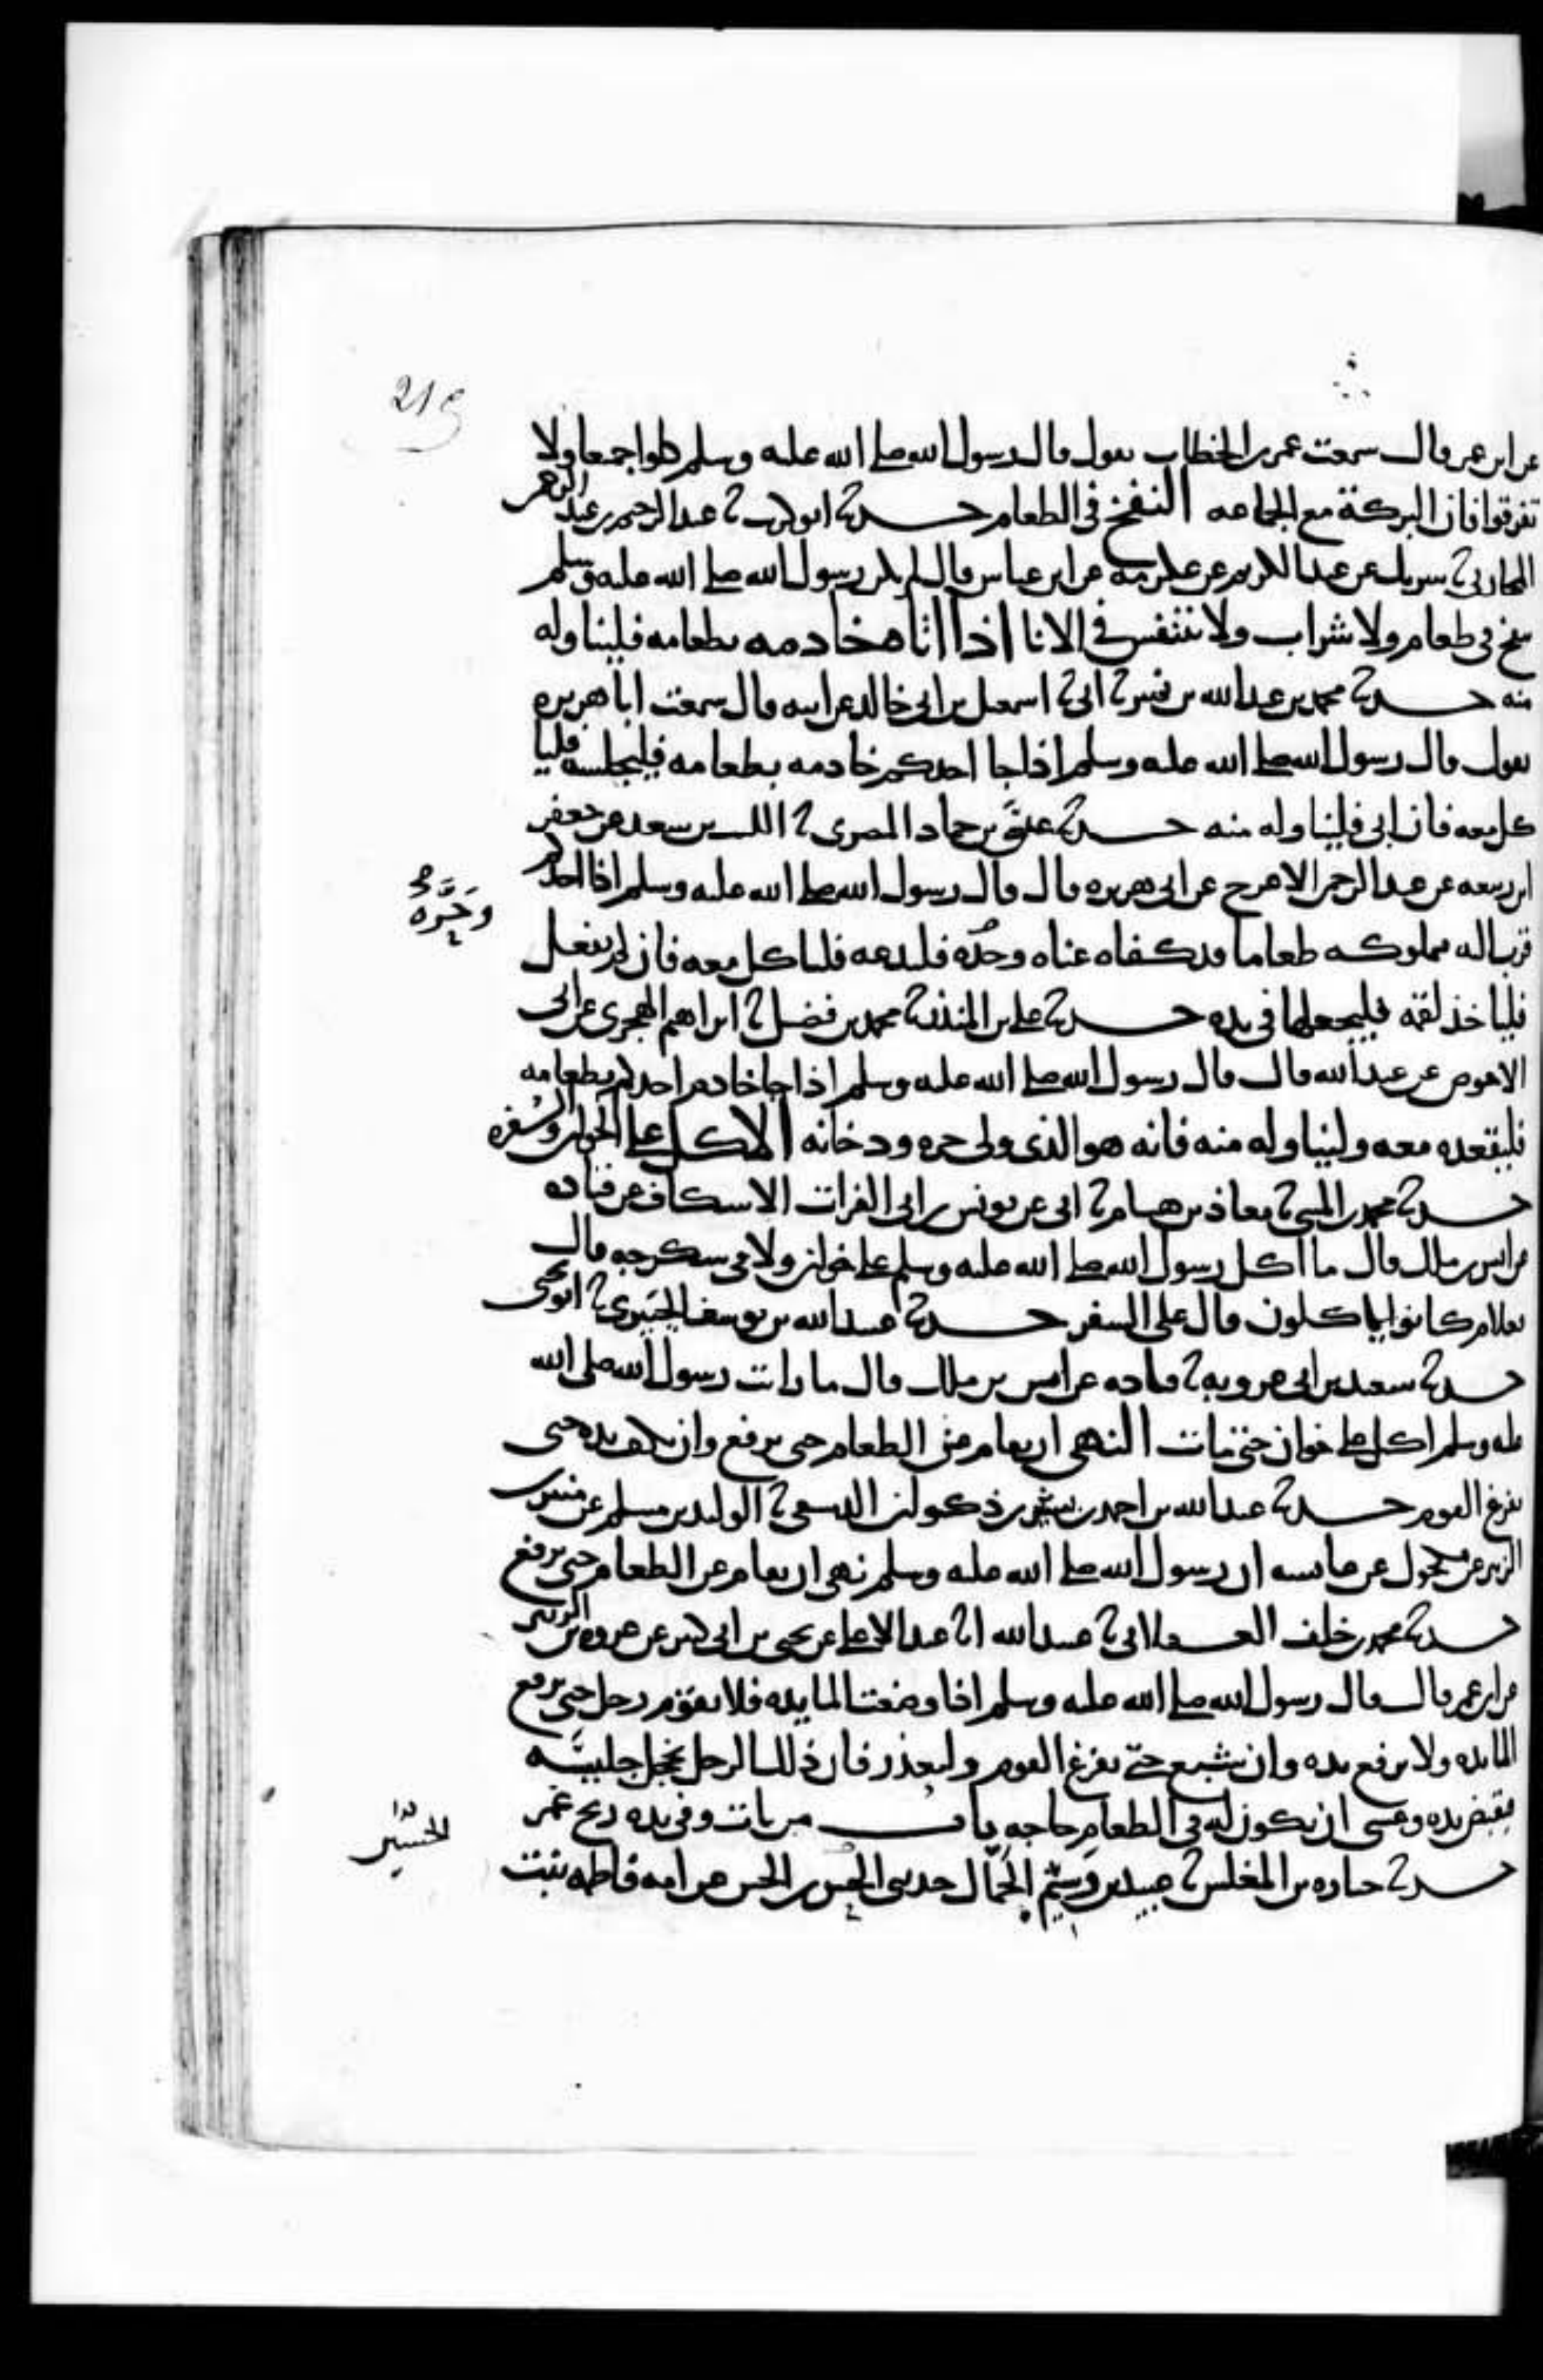 219
عن ابن عمر قال سمعت عمر بن الخطاب يقول قال رسول الله صلى الله عليه وسلم كلوا جميعا ولا
تفرقوا فان البركة مع الجماعه النفخ في الطعام حدثنا ابو كريب ثنا عبد الرحيم بن عبد الرحمن
المحاربي ثنا شريك عن عبد الكريم عن عكرمه عن ابن عباس قال لم يكن رسول الله صلى الله عليه وسلم
ينفخ في طعام ولا شراب ولا يتنفس في الانا اذا اتاه خادمه بطعامه فليناوله
منه حدثنا محمد بن عبد الله بن نمير ثنا ابي ثنا اسمعيل بن ابي خالد عن ابيه قال سمعت ابا هريره
يقول قال رسول الله صلى الله عليه وسلم اذا جا احدكم خادمه بطعامه فليجلسه فليا
كل معه فان ابى فليناوله منه حدثنا عيسى بن حماد المصري ثنا الليث بن سعد عن جعفر
ابن ربيعه عن عبد الرحمن الاعرج عن ابي هريره قال قال رسول الله صلى الله عليه وسلم اذا احدكم
قرب اليه مملوكه طعاما قد كفاه عناه وحره فليدعه فلياكل معه فان لم يفعل
وحره
فلياخذ لقمه فليجعلها في يده حدثنا علي بن المنذر ثنا محمد بن فضيل ثنا ابراهيم الهجري عن ابي
الاحوص عن عبد الله قال قال رسول الله صلى الله عليه وسلم اذا جا خادم احدكم بطعامه
فليقعده معه وليناوله منه فانه هو الذي ولي حره ودخانه الاكل على الخوان والسفره
حدثنا محمد بن المثنى ثنا معاذ بن هشام ثنا ابي عن يونس بن ابي الفرات الاسكاف عن قتاده
عن انس بن ملك قال ما اكل رسول الله صلى الله عليه وسلم على خوان ولا في سكرجه قال
فعلام كانوا ياكلون قال على السفر حدثنا عبيد الله بن يوسف الجبيري ثنا ابو بحر
حدثنا سعيد بن ابي عروبه ثنا قتاده عن انس بن ملك قال ما رايت رسول الله صلى الله
عليه وسلم اكل على خوان حتى مات النهي ان يقام عن الطعام حتى يرفع وان يكف يده حتى
يفرغ القوم حدثنا عبد الله بن احمد بن بشير بن ذكوان الدمشقي ثنا الوليد بن مسلم عن منير بن
الزبير عن مكحول عن عايشه ان رسول الله صلى الله عليه وسلم نهى ان يقام عن الطعام حتى يرفع
حدثنا محمد بن خلف العسقلاني ثنا عبيد الله انا عبد الاعلى عن يحيى بن ابي كثير عن عروه بن الزبير
عن ابن عمر قال قال رسول الله صلى الله عليه وسلم اذا وضعت المايده فلا يقوم رجل حتى يرفع
المايده ولا يرفع يده وان شبع حتى يفرغ القوم وليعذر فان ذلك الرجل يخجل جليسه
فيقبض يده وعسى ان يكون له في الطعام حاجه باب من بات وفي يده ريح غمر
الحسين
حدثنا جباره بن المغلس ثنا عبيد بن وسيم الجمال حدثني الحسن بن الحسن عن امه فاطمه بنت